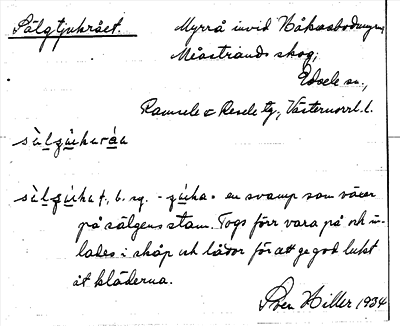 Sälgtjukrået.
Myrrå invid Håkasbodarnas,
Meåstrands skog,
Edsele sn.,
Ramsele & Resele tg., Västernorrl. l.
sä̀lzùkaråa
sä̀lzùka f., b. sg. -zùka = en svamp som växer
på sälgens stam. Togs förr vara på och in-
lades i skåp och lådor för att ge god lukt
åt kläderna.
Sven Hiller 1934